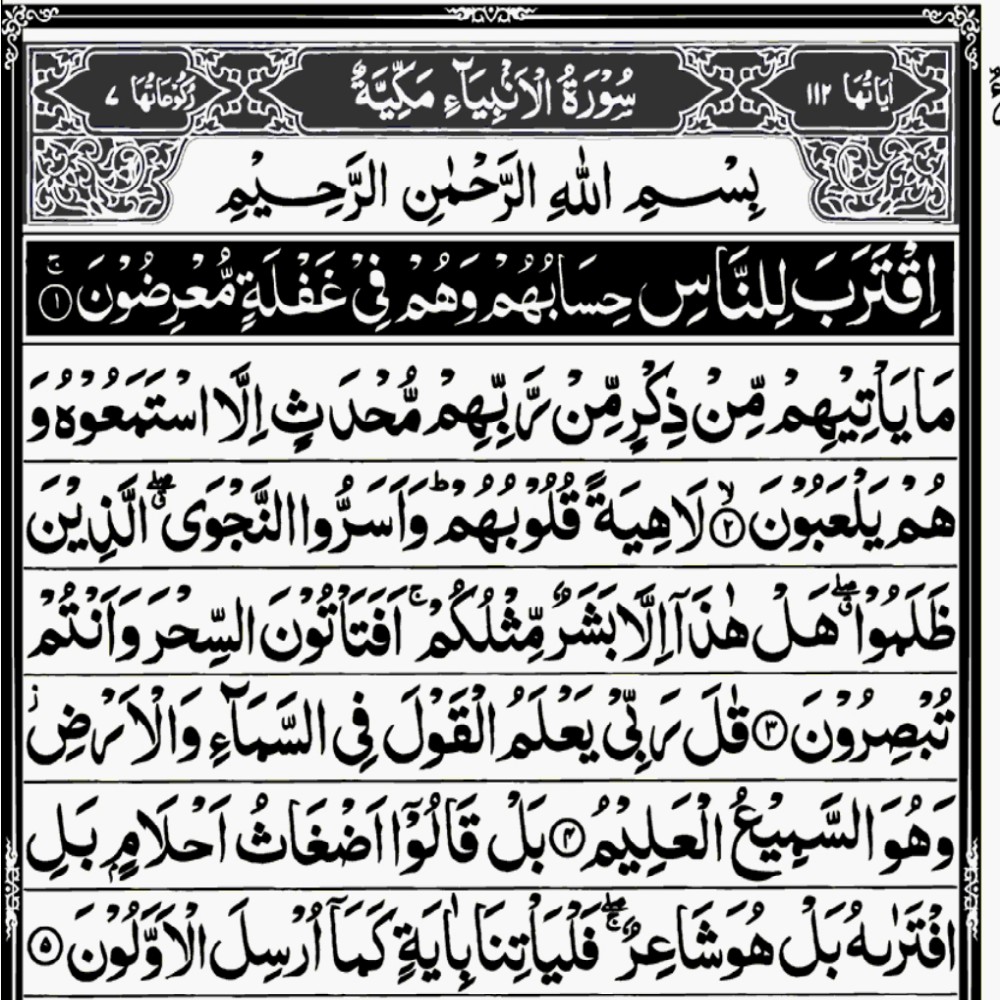 اٰيَاتُهَا ١١٢ سُوْرَةُ الْاَنْبِيَآءِ مَكِّيَّةٌ رُكُوْعَاتُهَا ٧
بِسْمِ اللّٰهِ الرَّحْمٰنِ الرَّحِيْمِ
اِقْتَرَبَ لِلنَّاسِ حِسَابُهُمْ وَهُمْ فِيْ غَفْلَةٍ مُّعْرِضُوْنَ ۚ ١
مَا يَاْتِيْهِمْ مِّنْ ذِكْرٍ مِّنْ رَّبِّهِمْ مُّحْدَثٍ اِلَّا اسْتَمَعُوْهُ وَ
هُمْ يَلْعَبُوْنَ ۙ ٢ لَاهِيَةً قُلُوْبُهُمْ ؕ وَاَسَرُّوا النَّجْوَى ۖۗ الَّذِيْنَ
ظَلَمُوْا ۖۗ هَلْ هٰذَآ اِلَّا بَشَرٌ مِّثْلُكُمْ ۚ اَفَتَاْتُوْنَ السِّحْرَ وَاَنْتُمْ
تُبْصِرُوْنَ ٣ قٰلَ رَبِّيْ يَعْلَمُ الْقَوْلَ فِي السَّمَآءِ وَالْاَرْضِ ز
وَهُوَ السَّمِيْعُ الْعَلِيْمُ ٤ بَلْ قَالُوْٓا اَضْغَاثُ اَحْلَامٍۭ بَلِ
افْتَرٰىهُ بَلْ هُوَ شَاعِرٌ ۖۚ فَلْيَاْتِنَا بِاٰيَةٍ كَمَآ اُرْسِلَ الْاَوَّلُوْنَ ٥